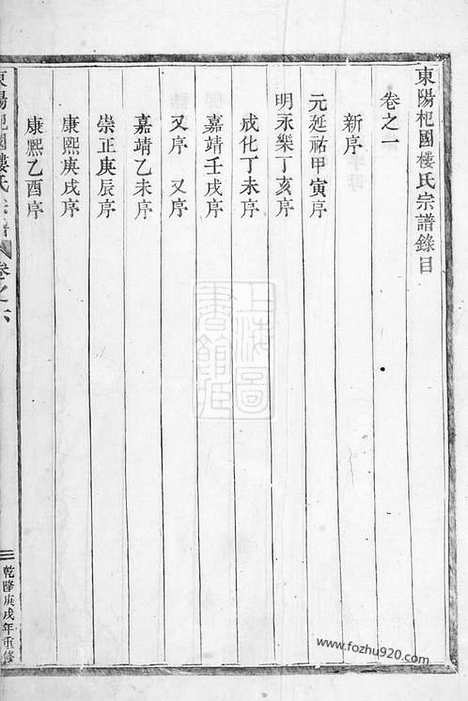 東陽杞國樓氏宗譜錄目
卷之一
新序
元延祐甲寅序
明永樂丁亥序
成化丁未序
嘉靖壬戌序
又序 又序
嘉靖乙未序
崇正庚辰序
康熙庚戌序
康熙乙酉序
東陽杞國樓氏宗譜
卷之六
三
乾隆庚戌年重修
上海圖書館藏
www.fozhu920.com